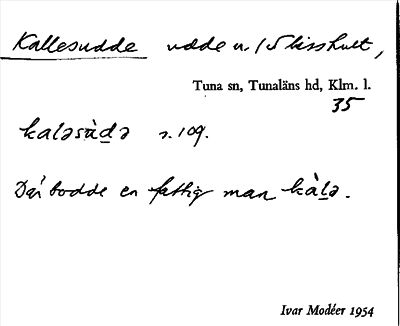 Kallesudde udde n. /
Tuna sn, Tunaläns hd, Klm. l.
35
kaləsùdə s. 109.
Där bodde en fattig man kàlə.
Ivar Modéer 1954